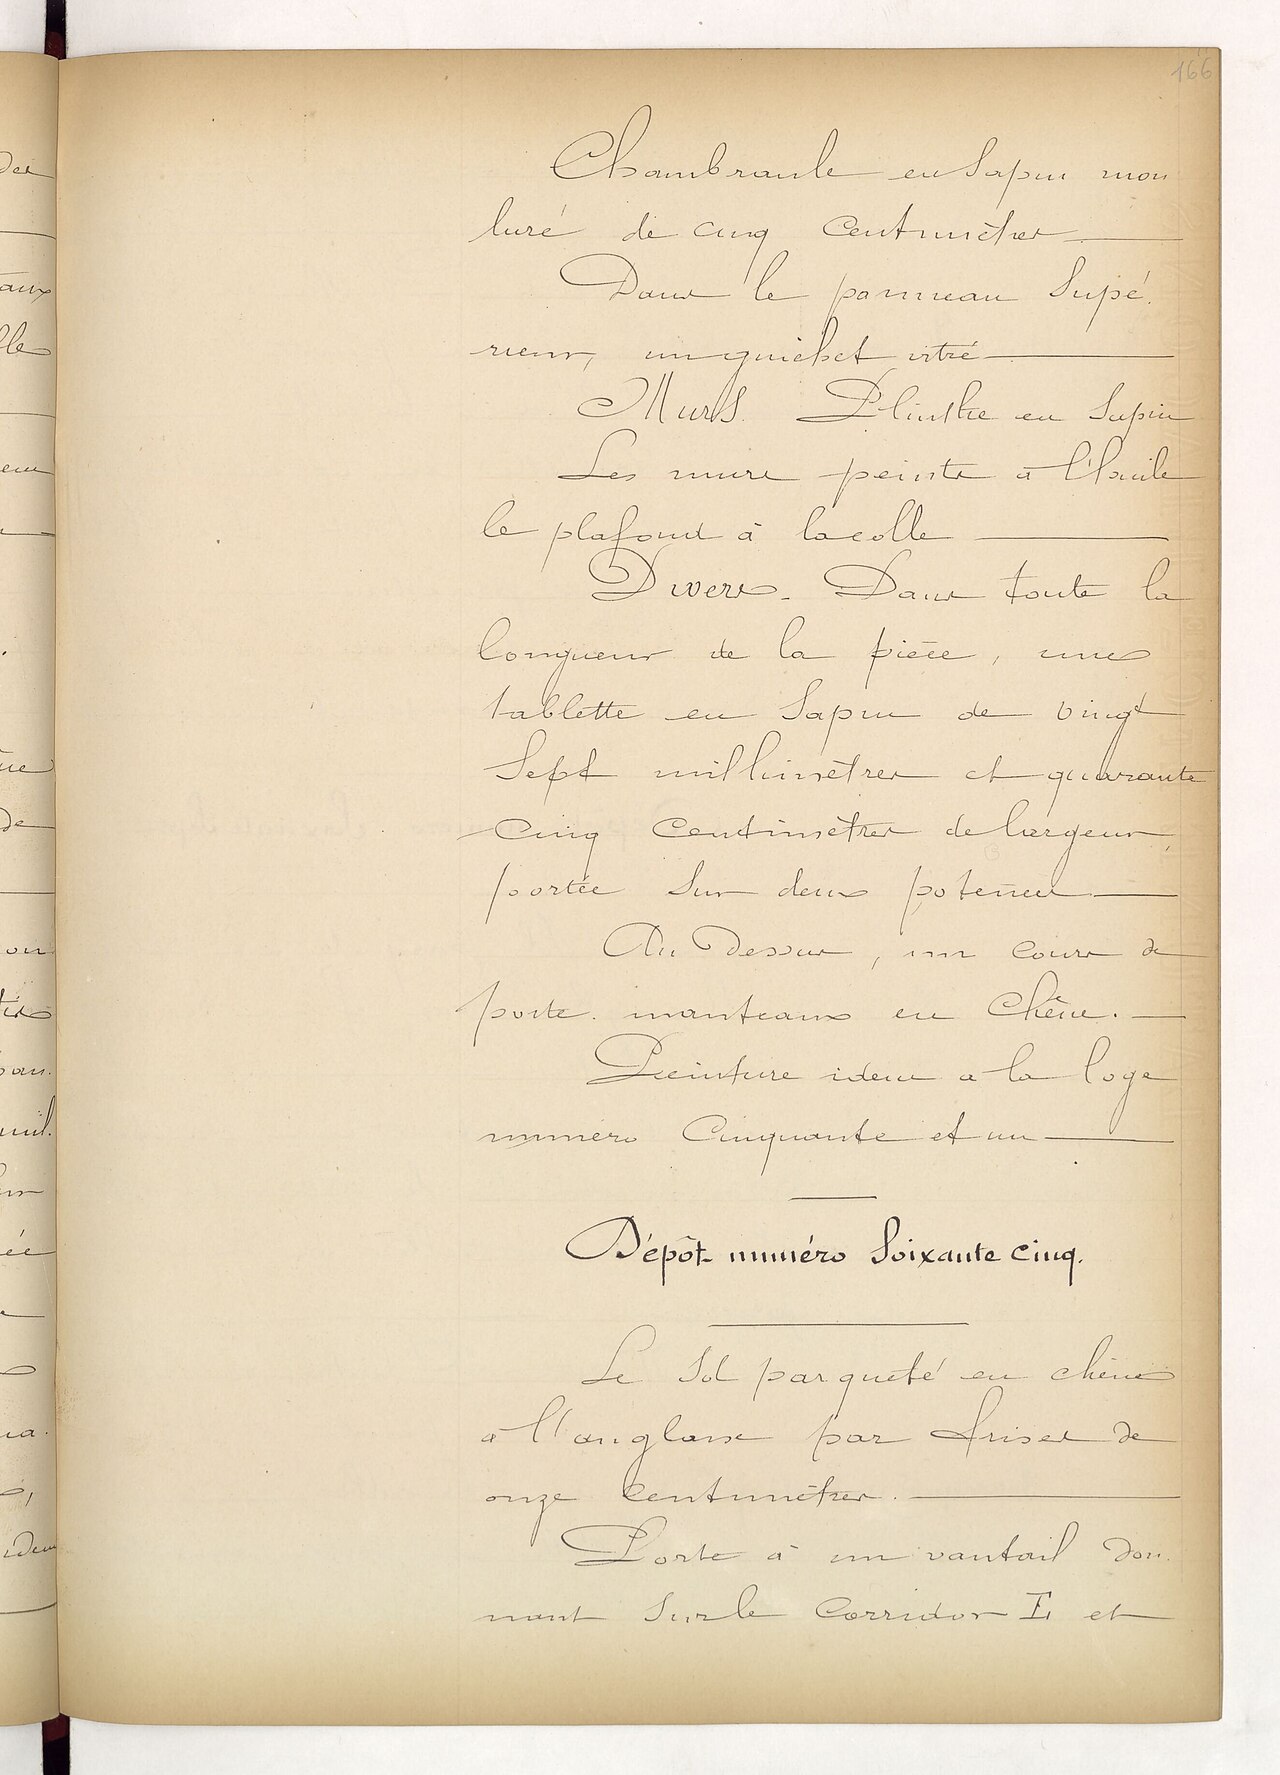 166
Chambranle en sapin mou
luré de cinq centimètres
Dans le panneau supé.
rieur, un guichet vitré
Murs. Plinthe en sapin
Les murs peints à l'huile
le plafond à la colle
Divers. Dans toute la
longueur de la pièce, une
tablette en sapin de vingt
sept millimètres et quarante
cinq centimètres de largeur,
portée sur deux potences
Au dessus, un cours de
porte. manteaux en chêne.
Peinture idem a la loge
numéro cinquante et un
Dépôt numéro soixante cinq.
Le sol parqueté en chêne
à l'anglaise par frises de
onze centimètres.
Porte à un vantail don.
nant sur le corridor E et